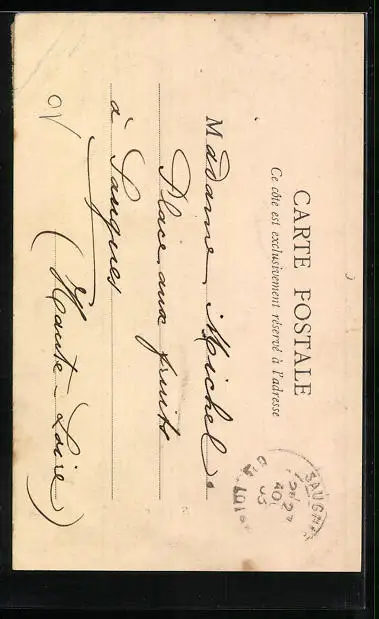 CARTE POSTALE
Ce côté est exclusivement réservé à l'adresse
Madame Michel
Place aux fruits
à Saugues
(Haute-Loire)
SAUGUES